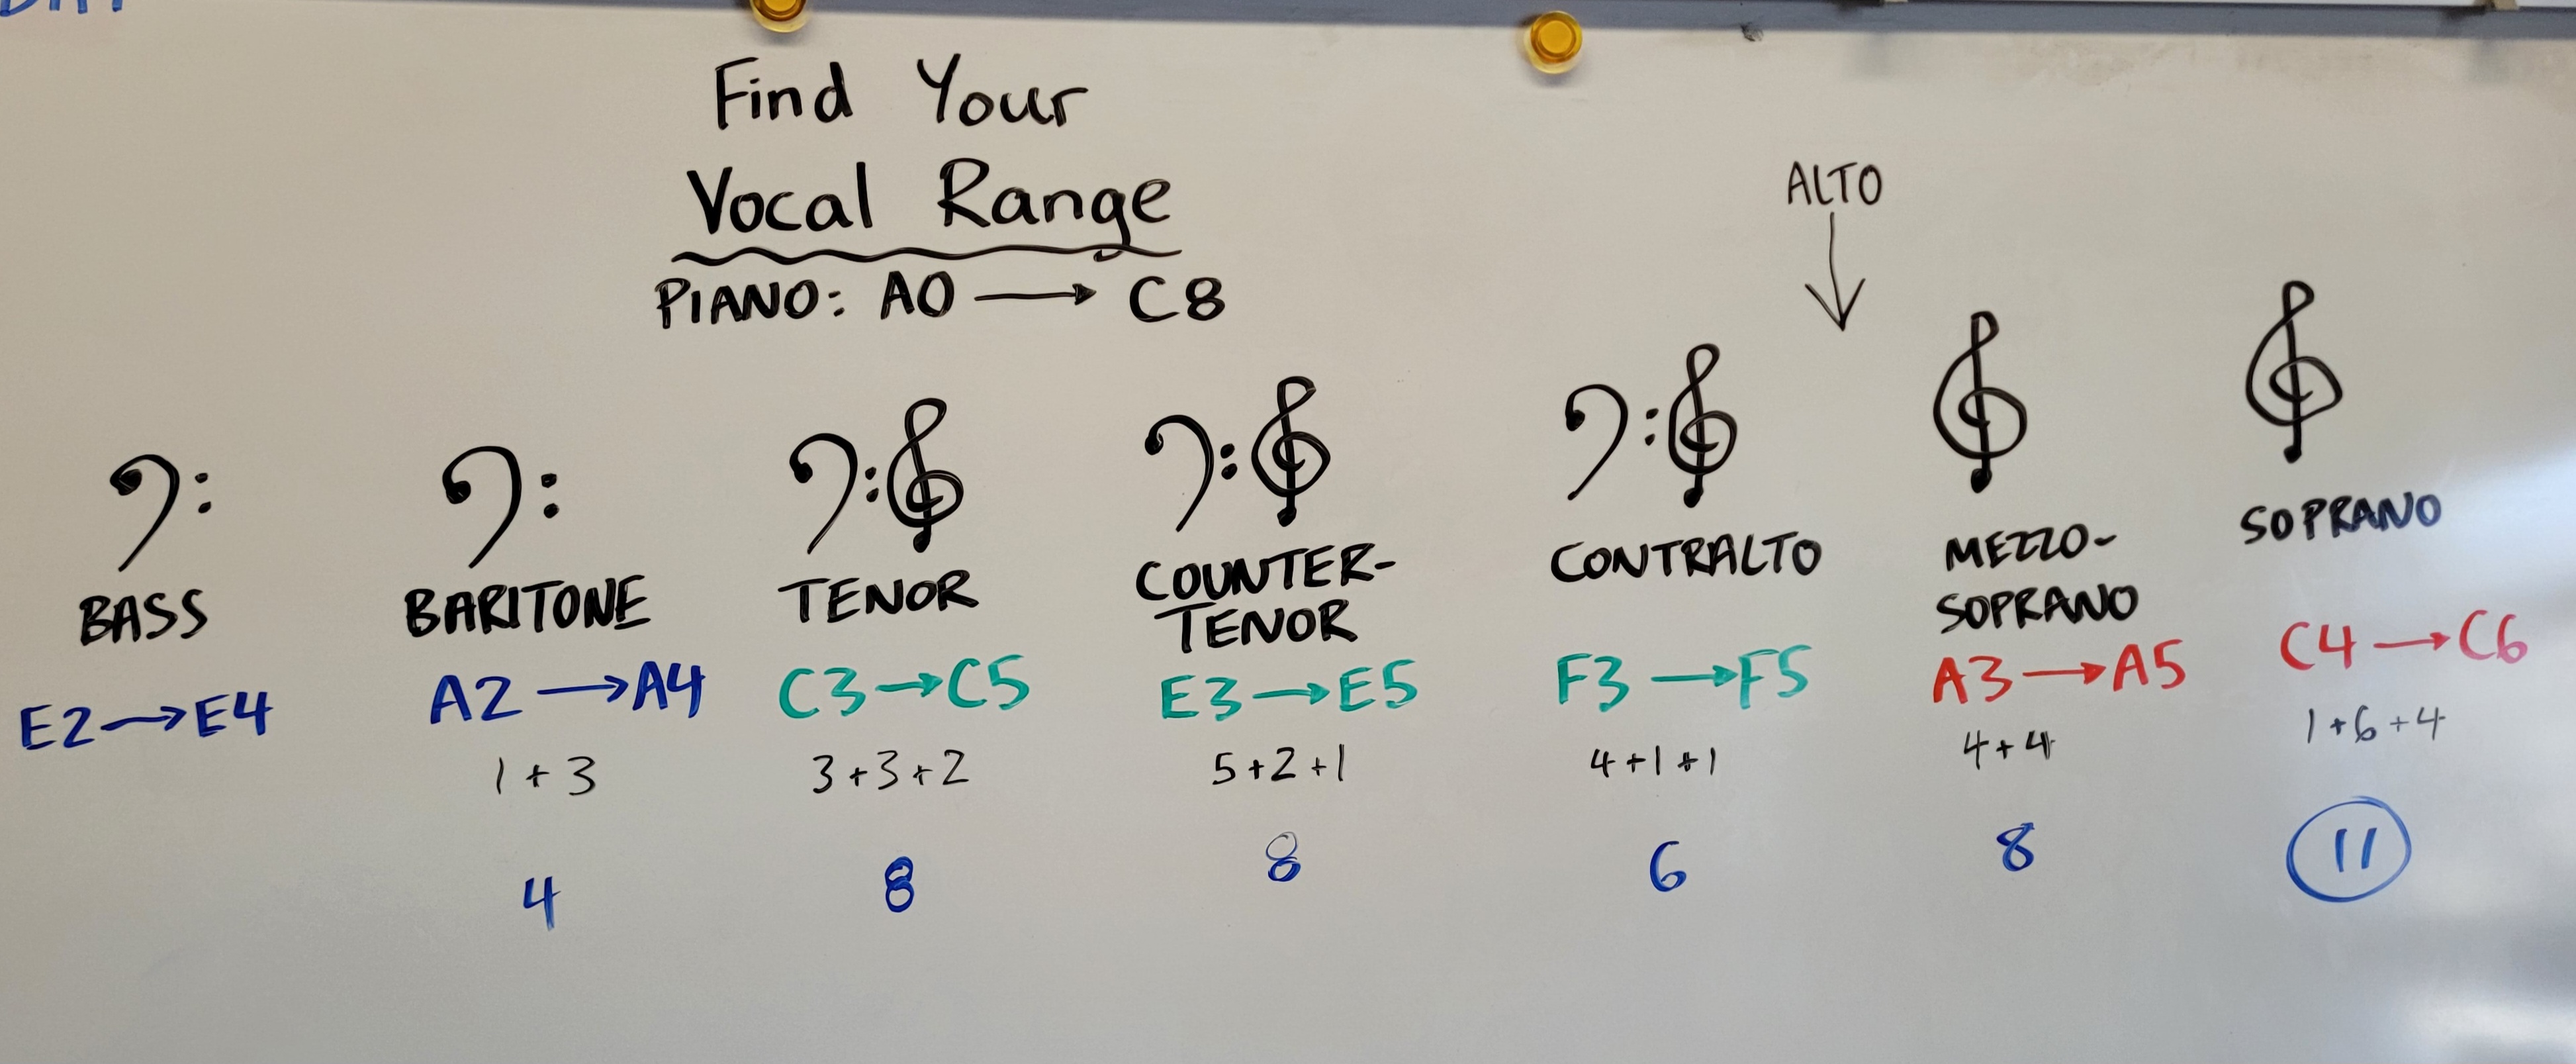 Find Your
Vocal Range
PIANO: A0 → C8
ALTO
BASS
E2→E4
BARITONE
A2→A4
1+3
4
TENOR
C3→C5
3+3+2
8
COUNTER-
TENOR
E3→E5
5+2+1
8
CONTRALTO
F3→F5
4+1+1
6
MEZZO-
SOPRANO
A3→A5
4+4
8
SOPRANO
C4→C6
1+6+4
11